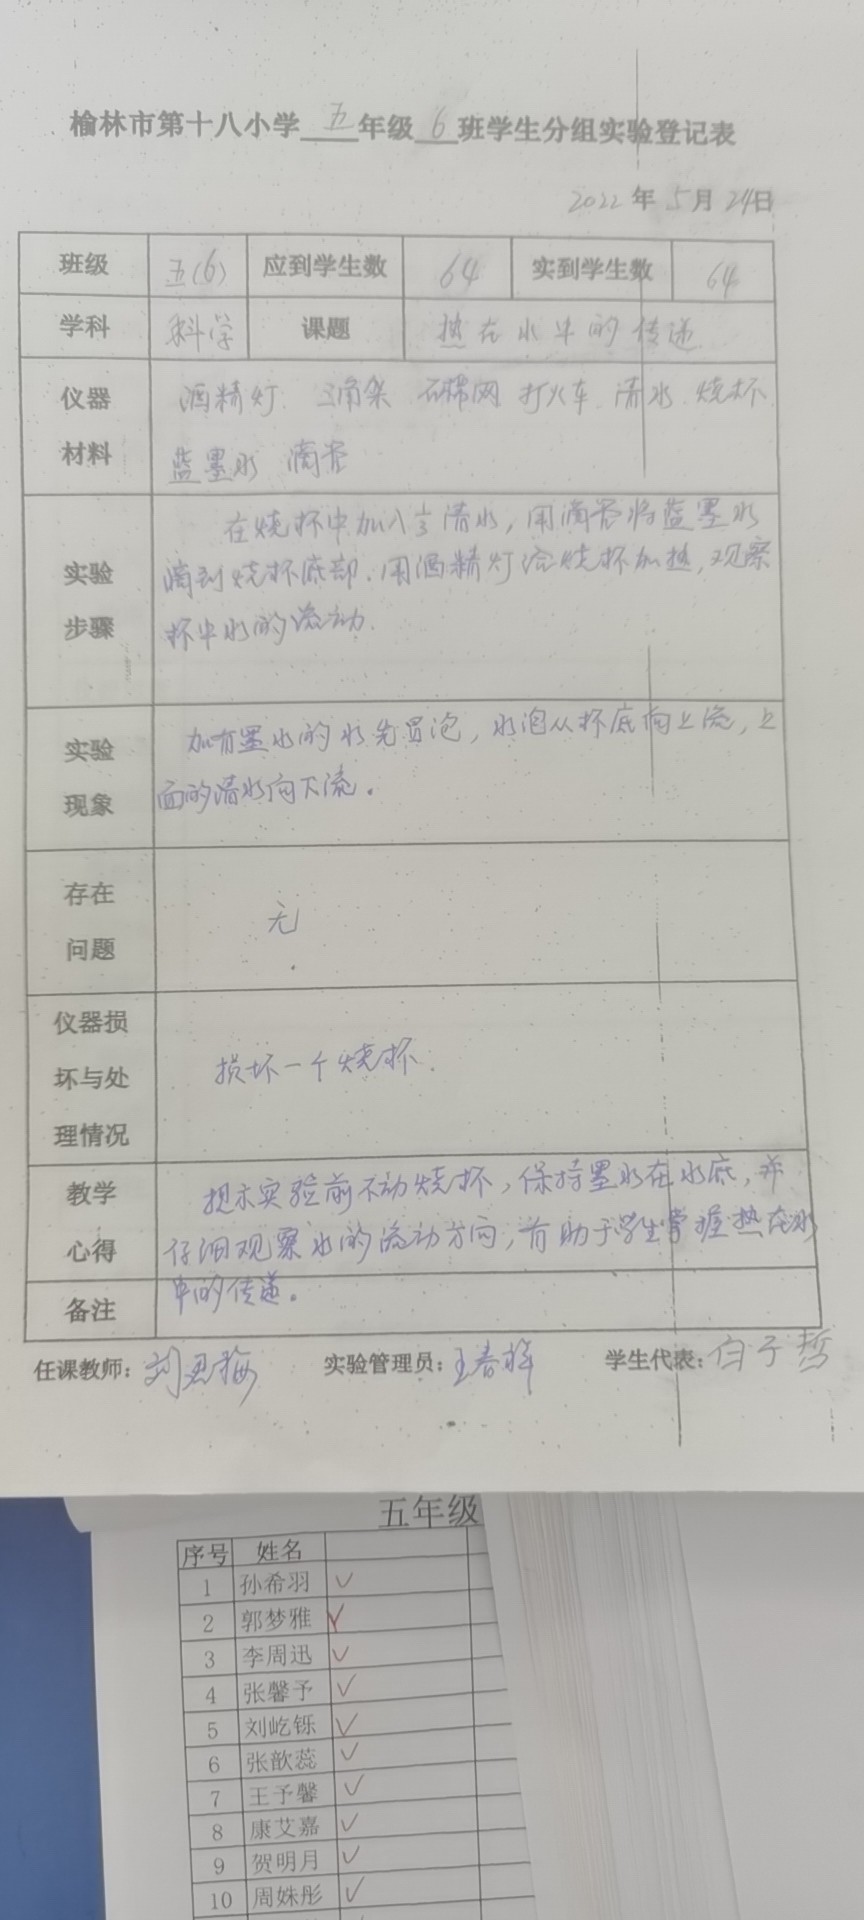 榆林市第十八小学 五 年级 6 班学生分组实验登记表
2022年 5月 24日
班级 五(6) 应到学生数 64 实到学生数 64
学科 科学 课题 热在水中的传递
仪器材料 酒精灯 三角架 石棉网 打火车 清水 烧杯
蓝墨水 滴管
实验步骤 在烧杯中加入1/3清水，用滴管将蓝墨水
滴到烧杯底部.用酒精灯给烧杯加热,观察
杯中水的流动.
实验现象 加有墨水的水先冒泡，水泡从杯底向上流，上
面的清水向下流。
存在问题 无
仪器损坏与处理情况 损坏一个烧杯.
教学心得 提示实验前不动烧杯，保持墨水在水底，并
仔细观察水的流动方向，有助于学生掌握热在水
中的传递。
备注
任课教师: 实验管理员: 学生代表: 白子哲
五年级
序号 姓名
1 孙希羽 ✓
2 郭梦雅 ✓
3 李周迅 ✓
4 张馨予 ✓
5 刘屹铄 ✓
6 张歆蕊 ✓
7 王予馨 ✓
8 康艾嘉 ✓
9 贺明月 ✓
10 周姝彤 ✓